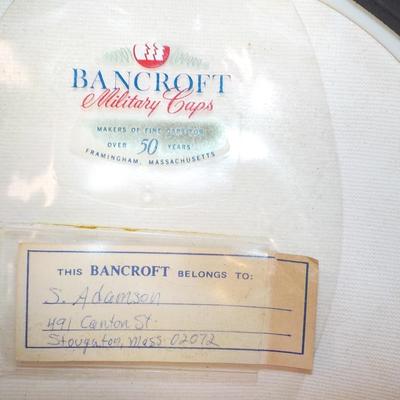 BANCROFT
Military Caps
MAKERS OF FINE CAPS FOR
OVER 50 YEARS
FRAMINGHAM, MASSACHUSETTS
THIS BANCROFT BELONGS TO:
S. Adamson
491 Canton St.
Stougaton, Mass 02072